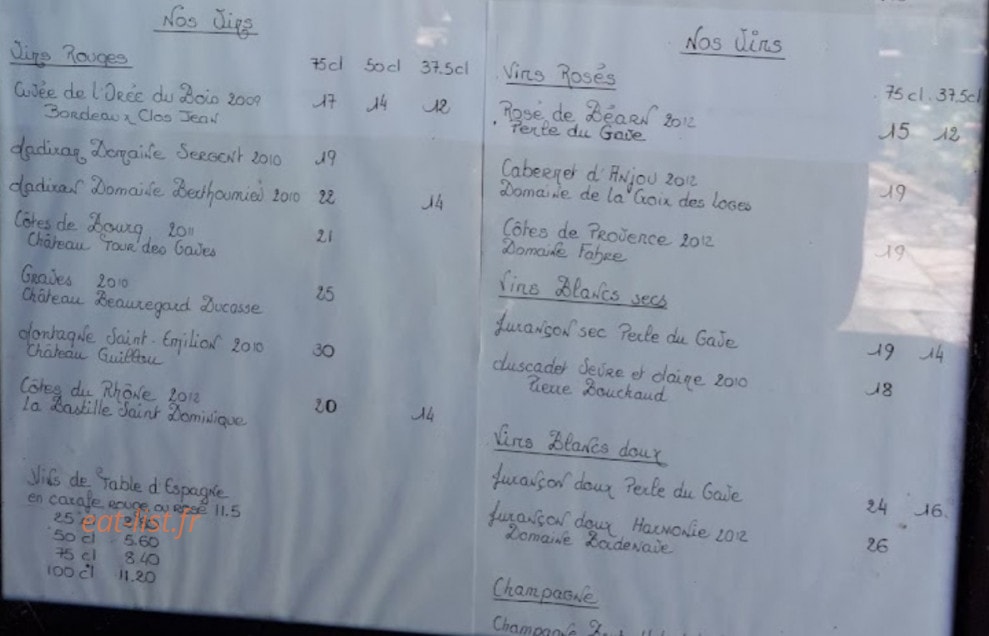 Nos Vins
Vins Rouges 75cl 50cl 37.5cl
Cuvée de l'Orée du Bois 2009 17 14 12
Bordeaux Clos Jean
Madiran Domaine Sergent 2010 19
Madiran Domaine Berthoumieu 2010 22 14
Côtes de Bourg 2011 21
Château Tour des Gaves
Graves 2010
Château Beauregard Ducasse 25
Montagne Saint-Emilion 2010 30
Château Guillou
Côtes du Rhône 2012 20 14
La Bastille Saint Dominique
Vins de Table d'Espagne
en carafe rouge ou rosé 11.5
25
50 cl 5.60
75 cl 8.40
100 cl 11.20
eat-list.fr
Nos Vins
Vins Rosés 75cl. 37.5cl
Rosé de Béarn 2012 15 12
Perle du Gave
Cabernet d'Anjou 2012 19
Domaine de la Croix des loges
Côtes de Provence 2012 19
Domaine Fabre
Vins Blancs secs
Jurançon sec Perle du Gave 19 14
Muscadet Sèvre et Maine 2010 18
Pierre Bouchaud
Vins Blancs doux
Jurançon doux Perle du Gave 24 16.
Jurançon doux Harmonie 2012 26
Domaine Bordenave
Champagne
Champagne